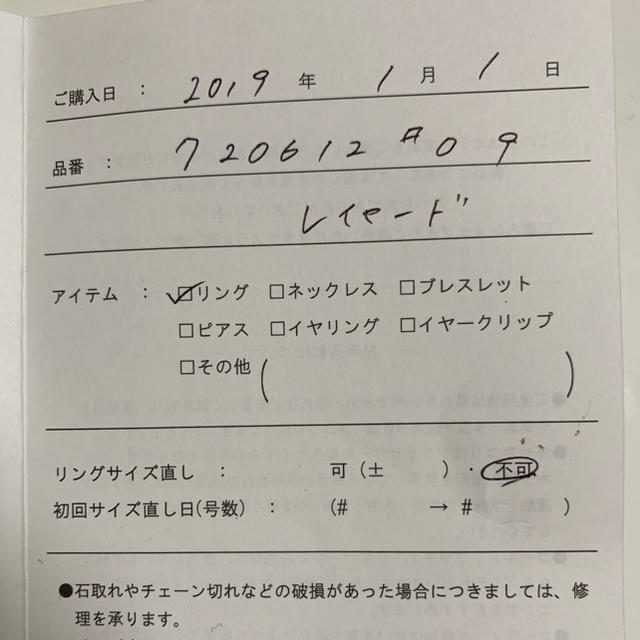 ご購入日 : 2019 年 1 月 1 日
品番 : 720612 A 09
レイヤード
アイテム : ☑リング □ネックレス □ブレスレット
□ピアス □イヤリング □イヤークリップ
□その他( )
リングサイズ直し : 可(± )・不可
初回サイズ直し日(号数) : (# → # )
●石取れやチェーン切れなどの破損があった場合につきましては、修
理を承ります。